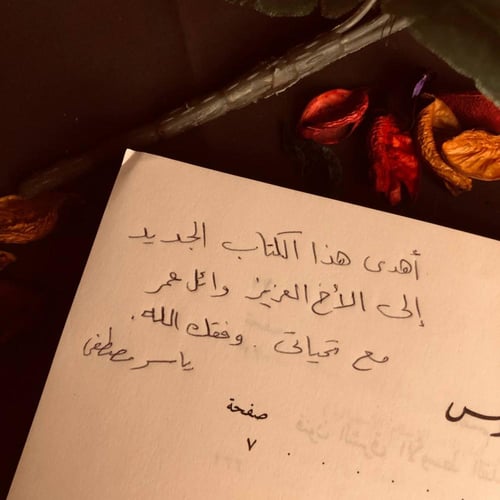 أهدى هذا الكتاب الجديد
إلى الأخ العزيز وائل عمر
مع تحياتى . وفقك الله .
ياسر مصطفى
صفحة
٧